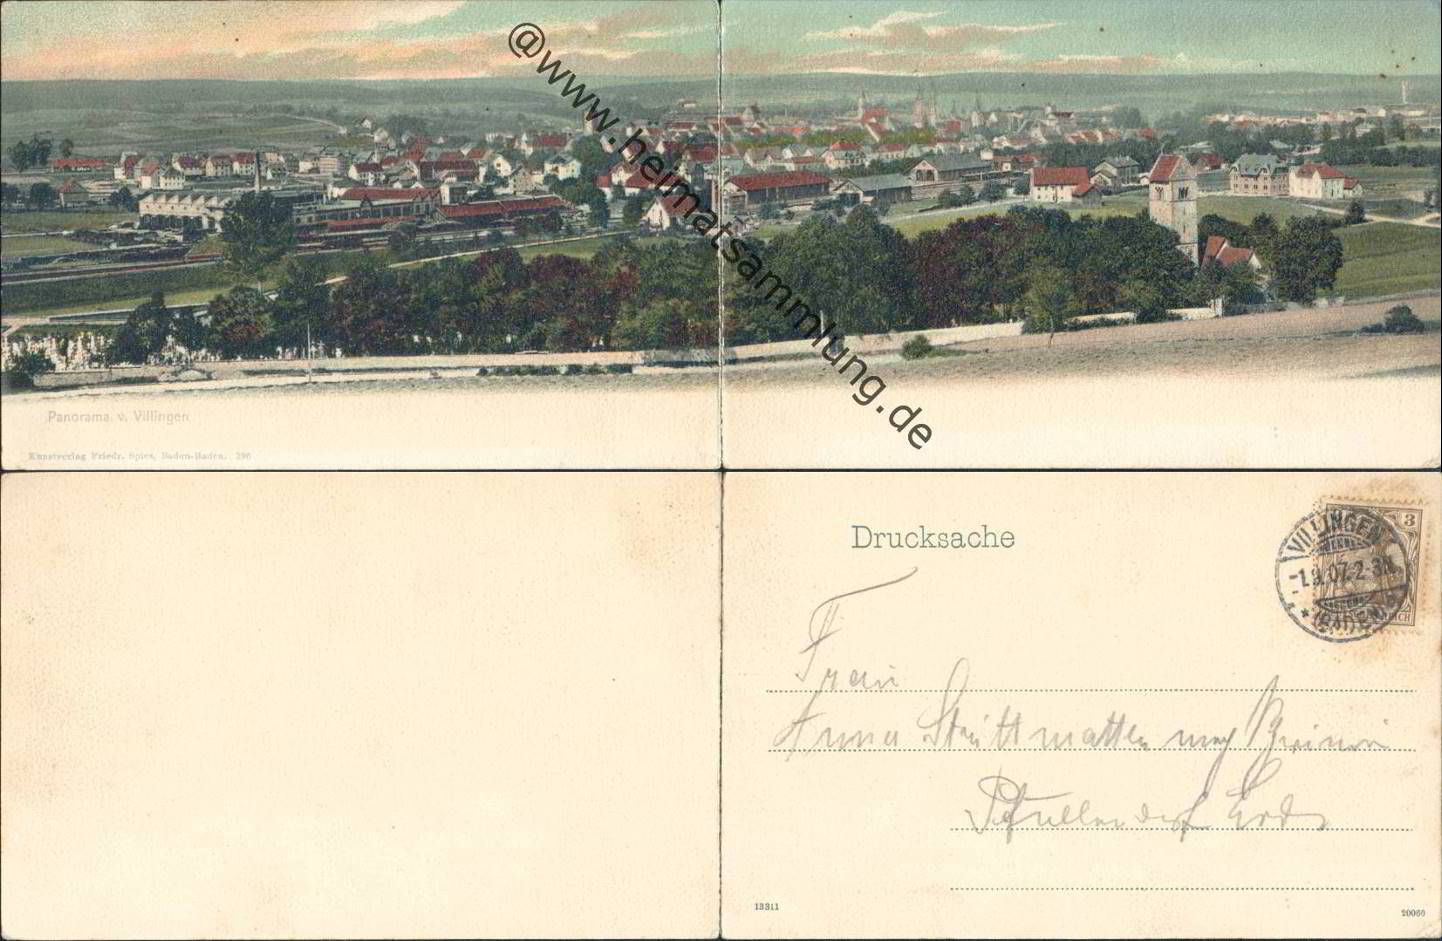 @www.heimatsammlung.de
Panorama v. Villingen
Kunstverlag Friedr. Spies, Baden-Baden. 296
Drucksache
3
VILLINGEN
-1.9.07.2-3N.
* (BADEN)
Frau
Anna Strittmatter
13311
20066